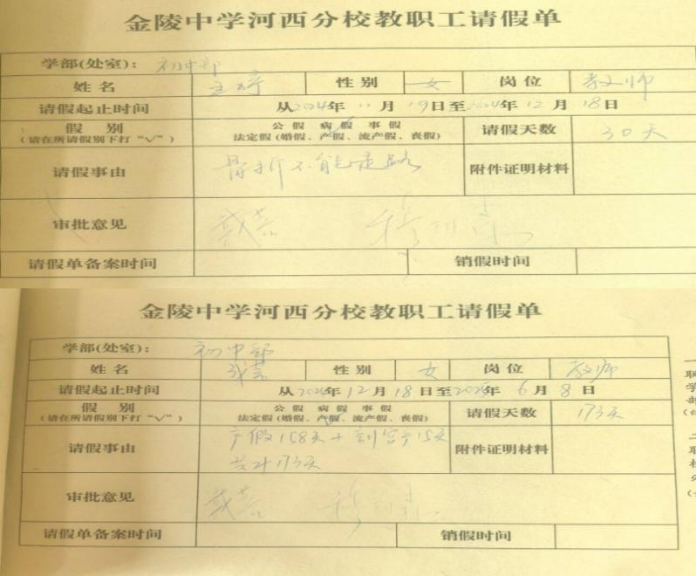 金陵中学河西分校教职工请假单
学部(处室)： 初中部
姓名 性别 女 岗位 教师
请假起止时间 从2024年11月19日至2024年12月18日
假别 公假 病假 事假 请假天数 30天
(请在所请假别下打“√”) 法定假(婚假、产假、流产假、丧假)
请假事由 骨折不能走路 附件证明材料
审批意见
请假单备案时间 销假时间
金陵中学河西分校教职工请假单
学部(处室)： 初中部
姓名 性别 女 岗位 教师
请假起止时间 从2024年12月18日至2025年6月8日
假别 公假 病假 事假 请假天数 173天
(请在所请假别下打“√”) 法定假(婚假、产假、流产假、丧假)
请假事由 产假158天+剖宫产15天 附件证明材料
共计173天
审批意见
请假单备案时间 销假时间